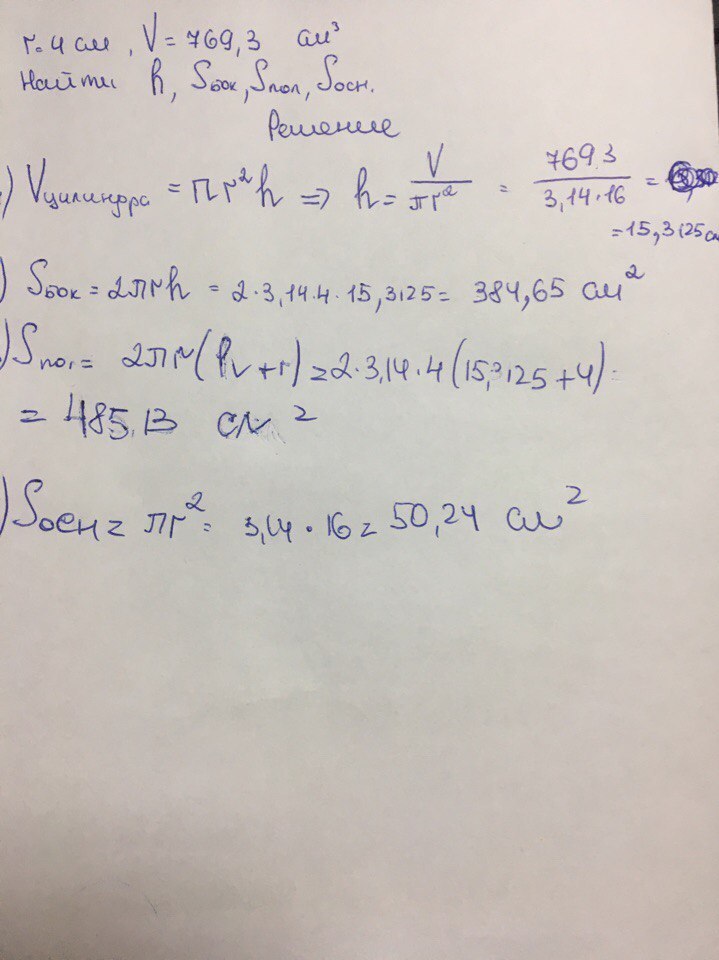 r=4 см, V=769,3 см³
Найти h, Sбок, Sпол, Sосн.
Решение
) Vцилиндра = πr²h => h = V/πr² = 769.3/3,14·16 =
=15,3125 см
) Sбок = 2πrh = 2·3,14·4·15,3125= 384,65 см²
) Sпол= 2πr(h+r)=2·3,14·4(15,3125+4)=
= 485,13 см²
) Sосн= πr²= 3,14·16= 50,24 см²